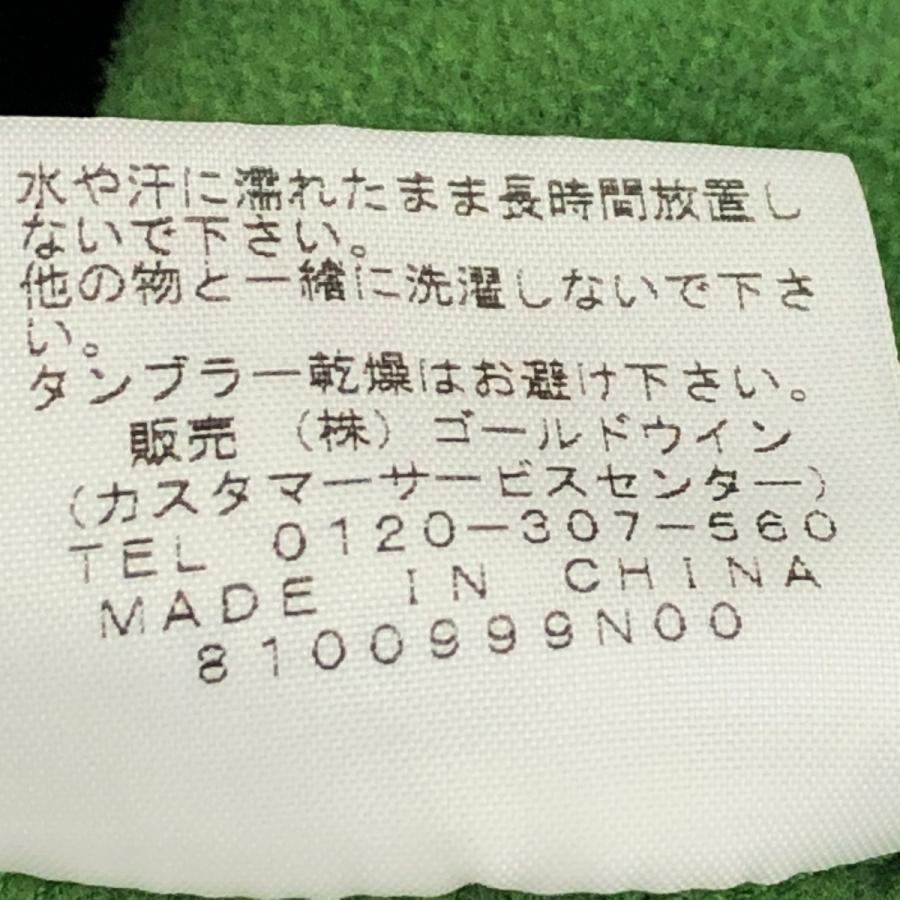 水や汗に濡れたまま長時間放置し
ないで下さい。
他の物と一緒に洗濯しないで下さ
い。
タンブラー乾燥はお避け下さい。
販売 (株) ゴールドウイン
(カスタマーサービスセンター)
TEL 0120-307-560
MADE IN CHINA
8100999N00